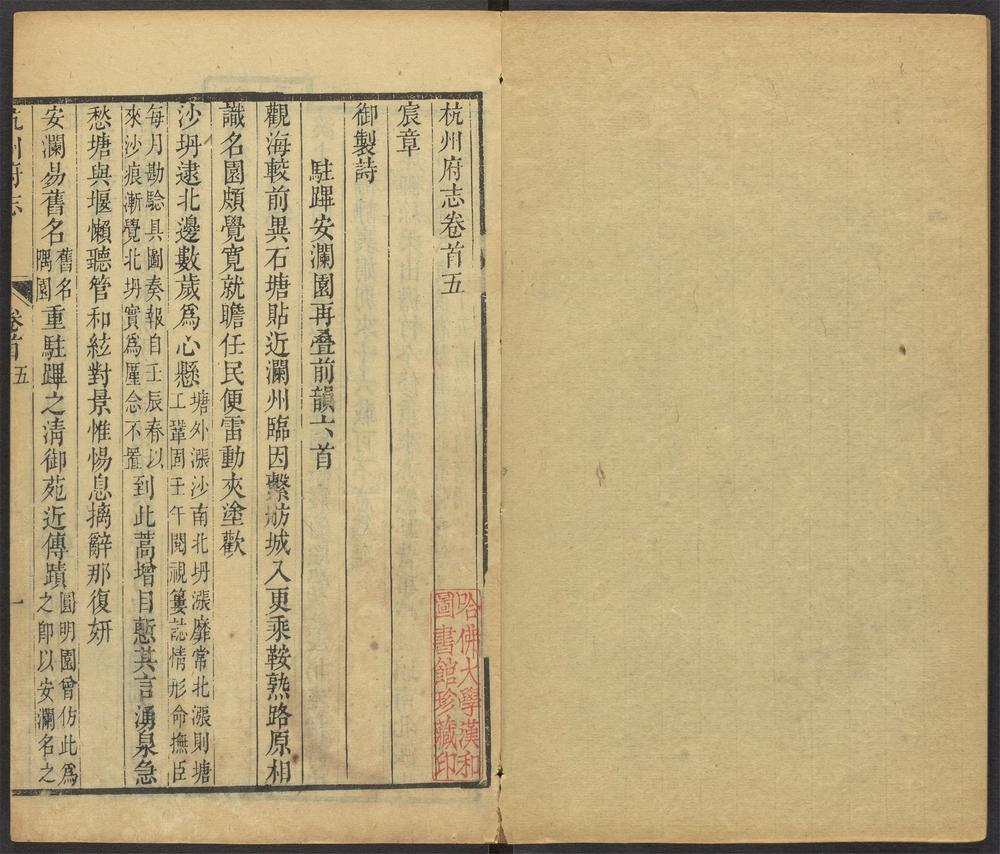 杭州府志卷首五
宸章
御製詩
駐蹕安瀾園再叠前韻六首
觀海較前異石塘貼近瀾州臨因繫舫城入更乘鞍熟路原相
識名園頗覺寬就瞻任民便雷動夾塗歡
沙坍逮北邊數歲爲心懸塘外漲沙南北坍漲靡常北漲則塘
工鞏固壬午閱視簍誌情形命撫臣
每月勘驗具圖奏報自壬辰春以
來沙痕漸覺北坍實爲廑念不置到此蒿增目慙其言湧泉急
愁塘與堰懶聽管和絃對景惟惕息摛辭那復妍
安瀾易舊名舊名
隅園重駐蹕之清御苑近傳蹟圓明園曾仿此爲
之即以安瀾名之
杭州府志
卷首五
一
哈佛大學漢和
圖書館珍藏印